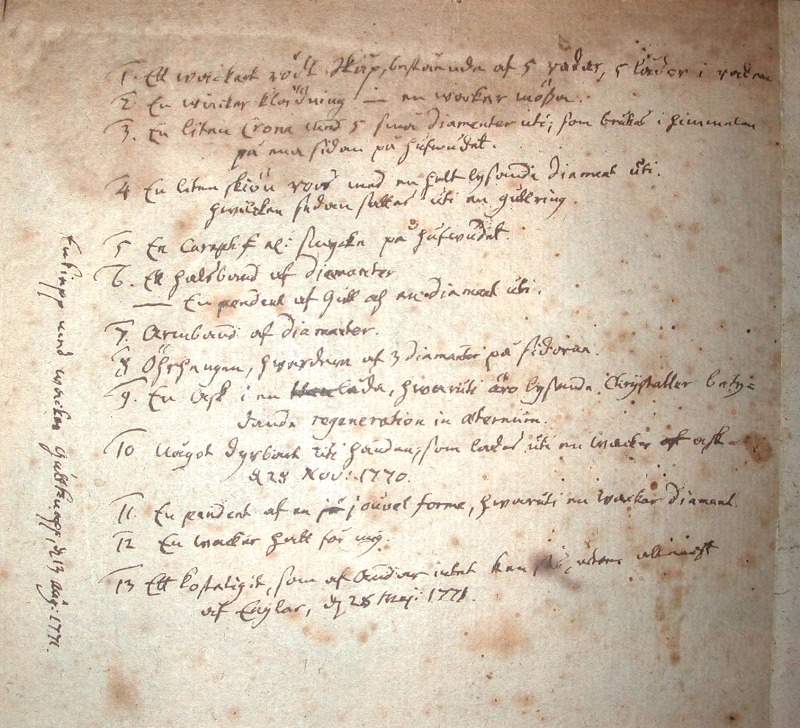 1. Ett wackert rödt Skåp, bestående af 5 rader, 5 lådor i raden
2. En wacker klädning — en wacker mössa.
3. En liten Crona med 5 små diamenter uti, som brukas i himmelen
på ena sidan på hufwudet.
4 En liten skiön ros med en helt lysande diamant uti.
hwilcken sedan sattes uti en gullring.
5 En smycke på hufwudet.
6. Ett halsband af diamanter
— En pendent af Gull och en diamant uti.
7. Armband af diamanter.
8 Öhrhengen, hwardera af 3 diamanter på sidoran.
9. En Ask i en låda, hwaruti äro lysande Chrystaller bety=
dande regeneration in æternum.
10 Något dyrbart uti handen, som lades uti en wacker ask
d. 28 Nov: 1770.
11. En pendent af en jouvel forme, hwaruti en wacker diamant.
12 En wacker hatt för mig.
13 Ett kosteligit, som af andar intet kan ses, utan allenast
af Englar, d. 28 Maj: 1771.
med wacker d. 13 aug: 1771.